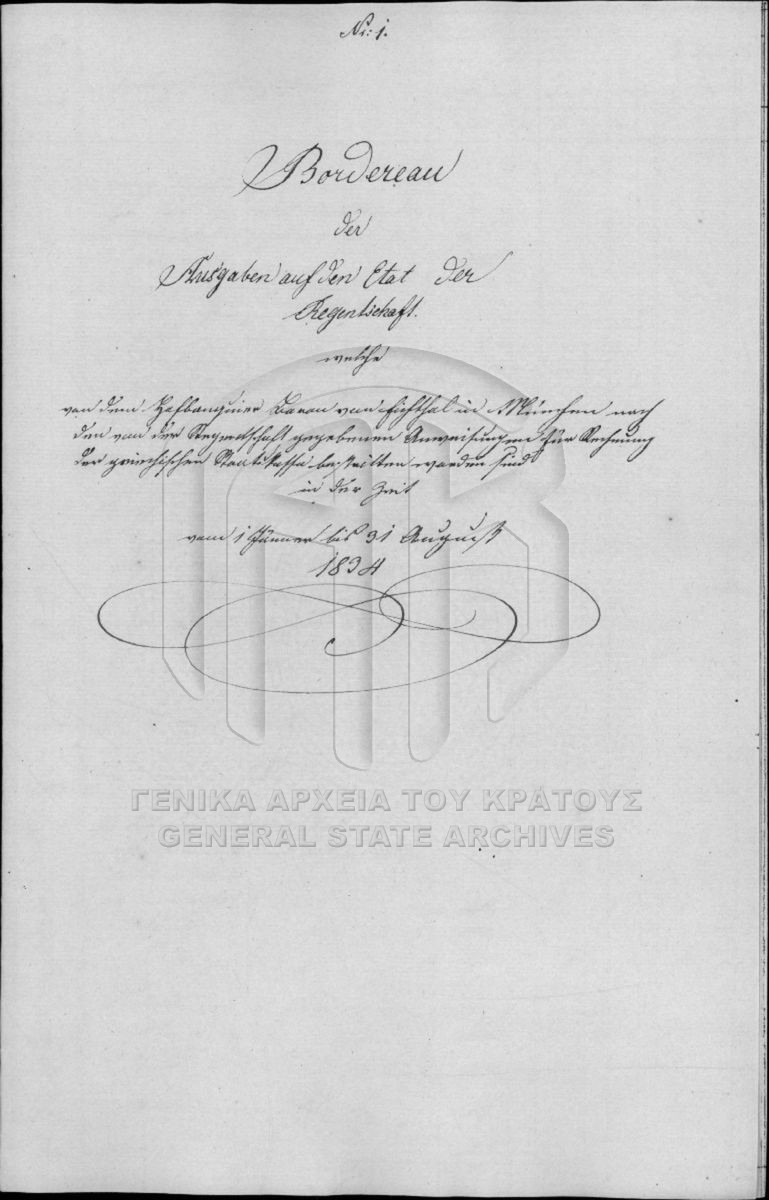 Nr: 1.
Bordereau
der
Ausgaben auf den Etat der
Regentschaft.
welche
von dem Hofbanquier Baron von Eichthal in München nach
den von der Regentschaft gegebenen Anweisungen für Rechnung
der griechischen Staatskasse bestritten worden sind
in der Zeit
vom 1 Jänner bis 31 August
1834
ΓΕΝΙΚΑ ΑΡΧΕΙΑ ΤΟΥ ΚΡΑΤΟΥΣ
GENERAL STATE ARCHIVES